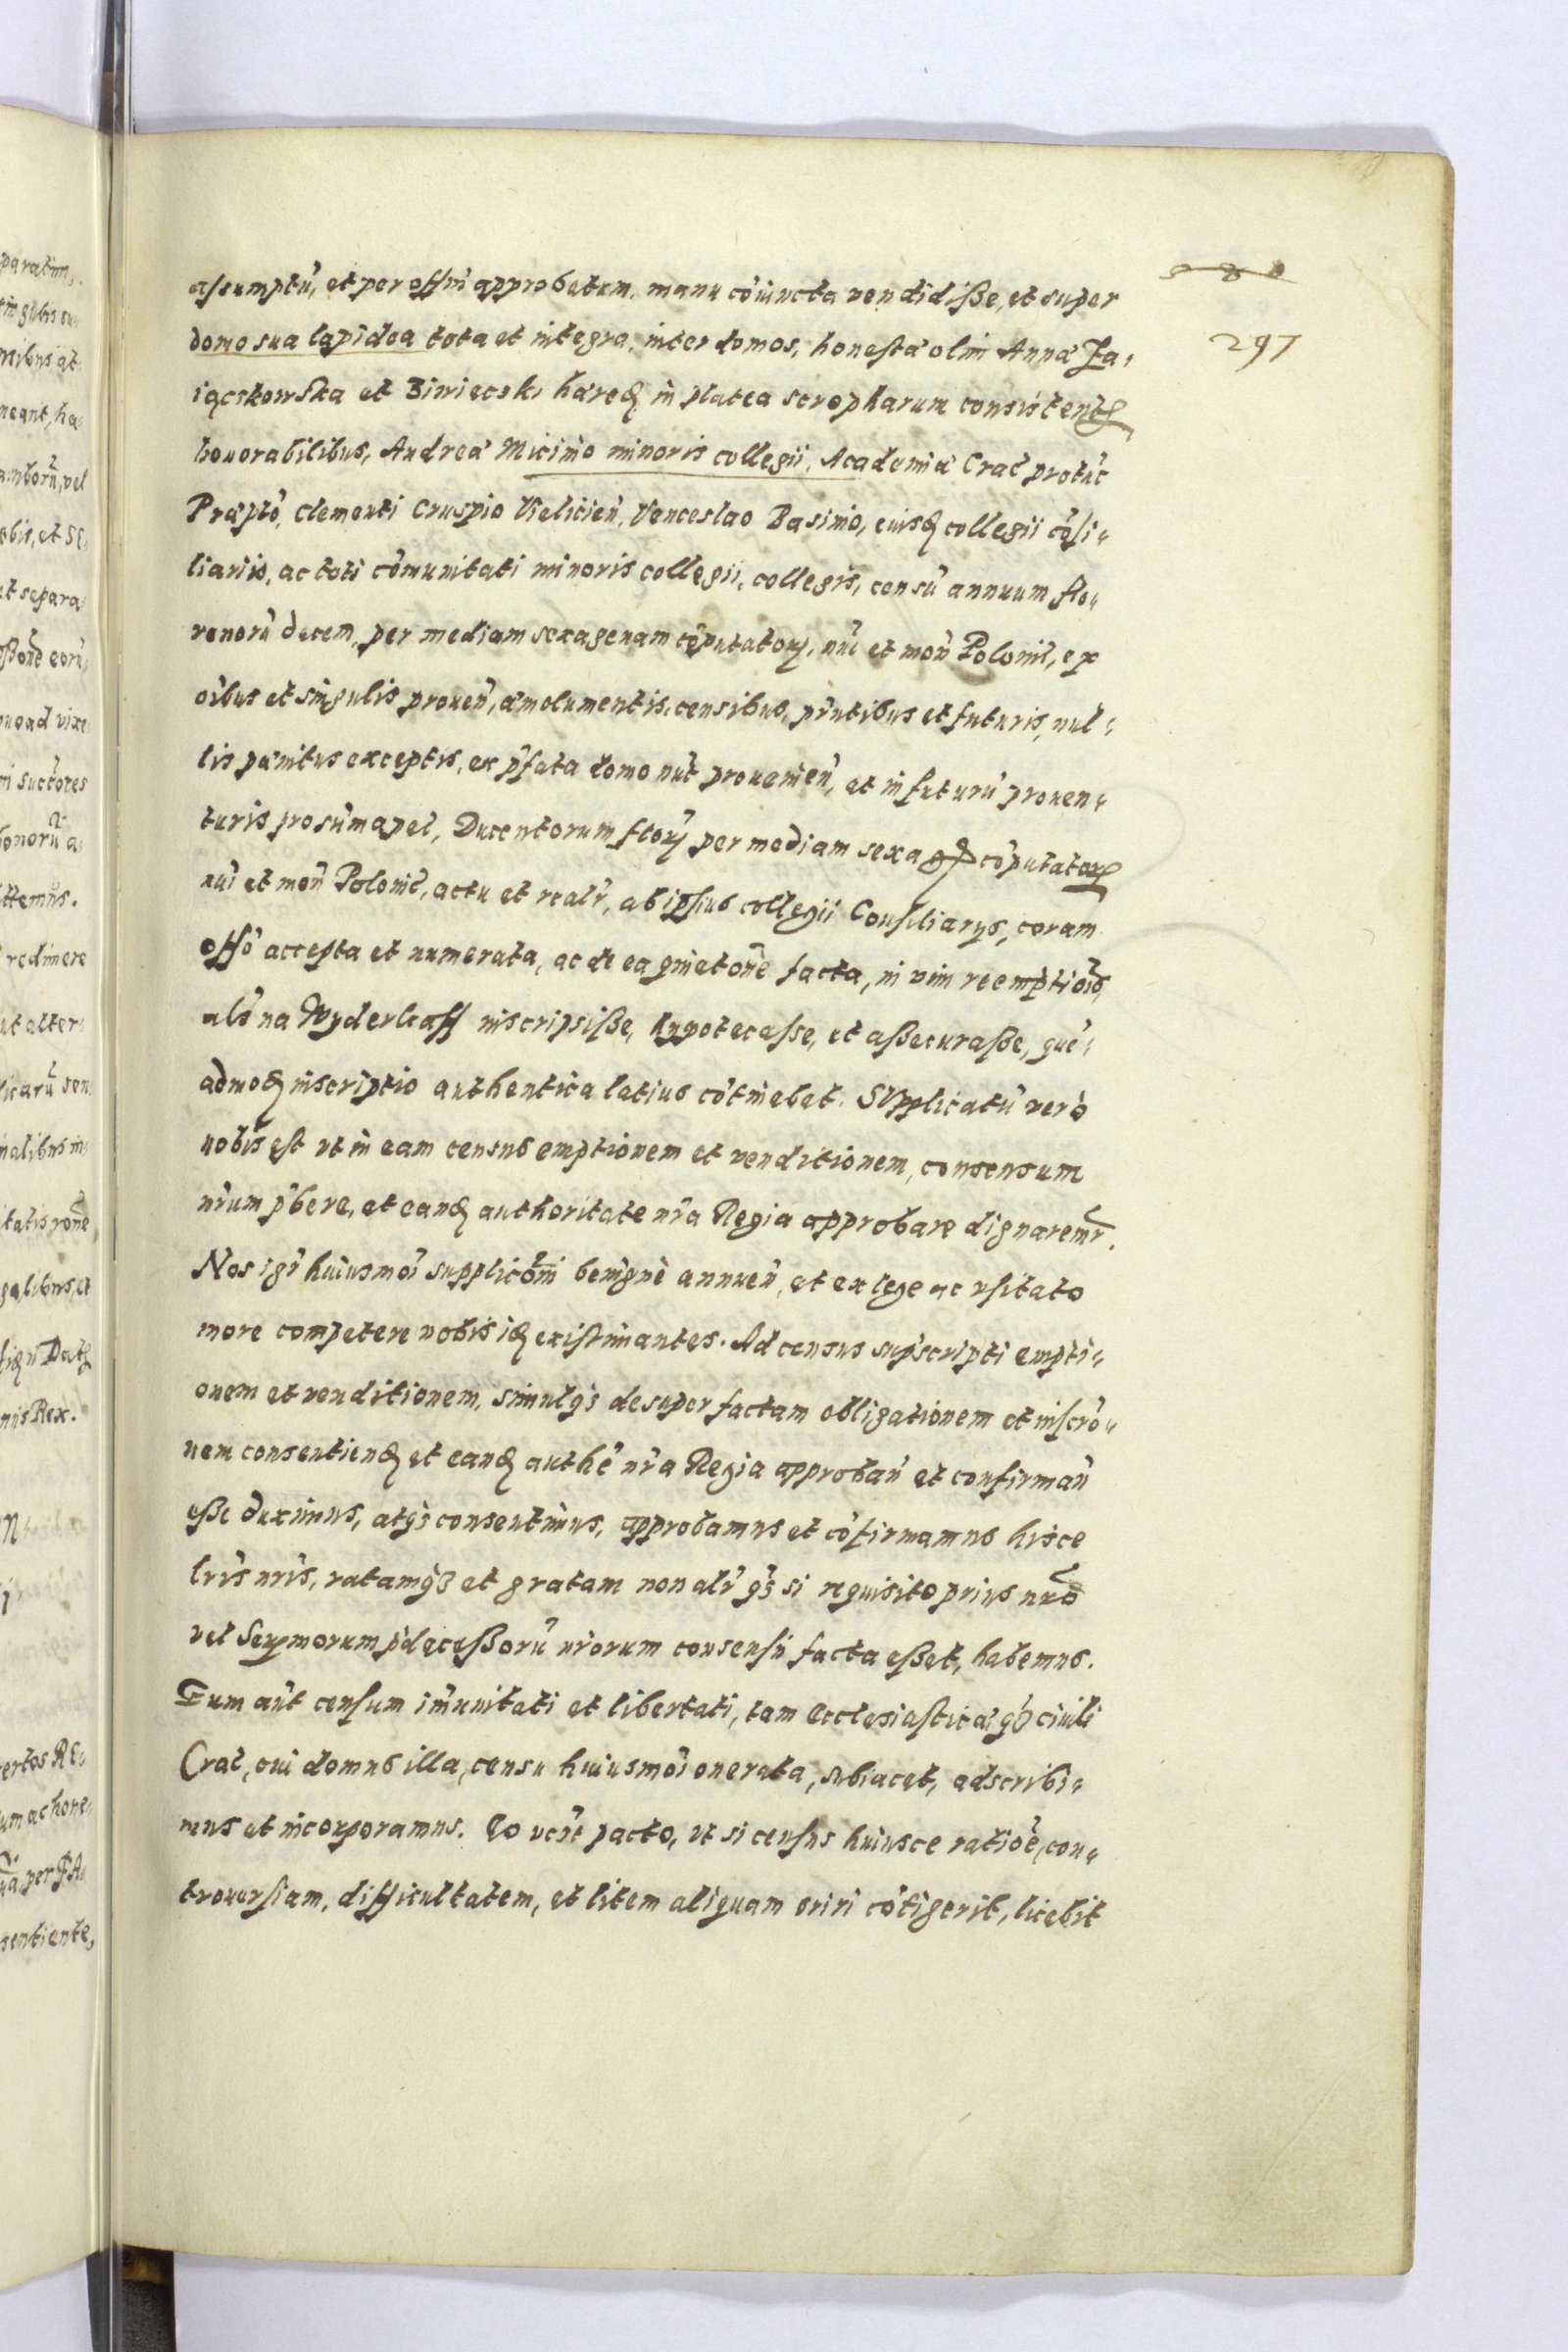 assumptũ, et per offm̃ approbatum, manu cõiuncta vendidiße, et super
domo sua lapidea tota et integra, inter domos, honestæ olim Annæ Za„
iączkowska et Ziwiecski hæredꝫ in platea scropharum consistentꝫ
honorabilibus, Andreæ Micino minoris collegii, Academiæ Crac̃ protũc
Præpto͂, Clementi Cruspio Vieliciẽn, Venceslao Basinio, eiusdꝫ collegii cõsi„
liariis, ac toti cõmunitati minoris collegii, collegis, censũ annuum flo„
renorũ decem, per mediam sexagenam cõputatorꝫ, nũi et moñ Polonic̃, ex
oĩbus et singulis proueñ, æmolumentis, censibus, pñtibus et futuris, nul„
lis pænitus exceptis, ex p̃fata domo nũc proueniẽn, et in futurũ prouen„
turis pro sũma pec̃, Ducentorum florꝫ per mediam sexagꝫ cõputatorꝫ
nũi et moñ Polonic̃, actu et realr̃, ab ipsius collegii Consiliarijs, coram
offõ accepta et numerata, ac de ea quietõne facta, in vim reemptiõis,
als̃ na Wyderkaff inscripsiße, hypotecasse, et aßecuraße, quẽ„
admodꝫ inscriptio authentica latius cõtinebat. Supplicatũ verò
nobis est vt in eam census emptionem et venditionem, consensum
nr̃um p̃bere, et eandꝫ authoritate nr̃a Regia approbare dignaremr̃.
Nos igr̃ huiusmõi supplicõni benignè annueñ, et ex lege ac vsitato
more competere nobis idꝫ existimantes. Ad census sup̃scripti empti„
onem et venditionem, simulqꝫ desuper factam obligationem et inscrõ„
nem consentiendꝫ et eandꝫ authẽ nr̃a Regia approbañ et confirmañ
eße duximus, atqꝫ consentimus, approbamus et cõfirmamus hisce
lr̃is nr̃is, ratamqꝫ et gratam non alr̃ qꝫ si requisito prius nr̃o
vel Serꝫmorum p̃deceßorũ nr̃orum consensu facta eßet, habemus.
Eum aũt censum im̃unitati et libertati, tam Ecclesiasticæ qꝫ ciuili
Crac̃, cui domus illa, censu huiusmõi onerata, subiacet, adscribi„
mus et incorporamus. Eo verò pacto, vt si census huiusce ratiõe, con„
trouersiam, difficultatem, et litem aliquam oriri cõtigerit, licebit
297